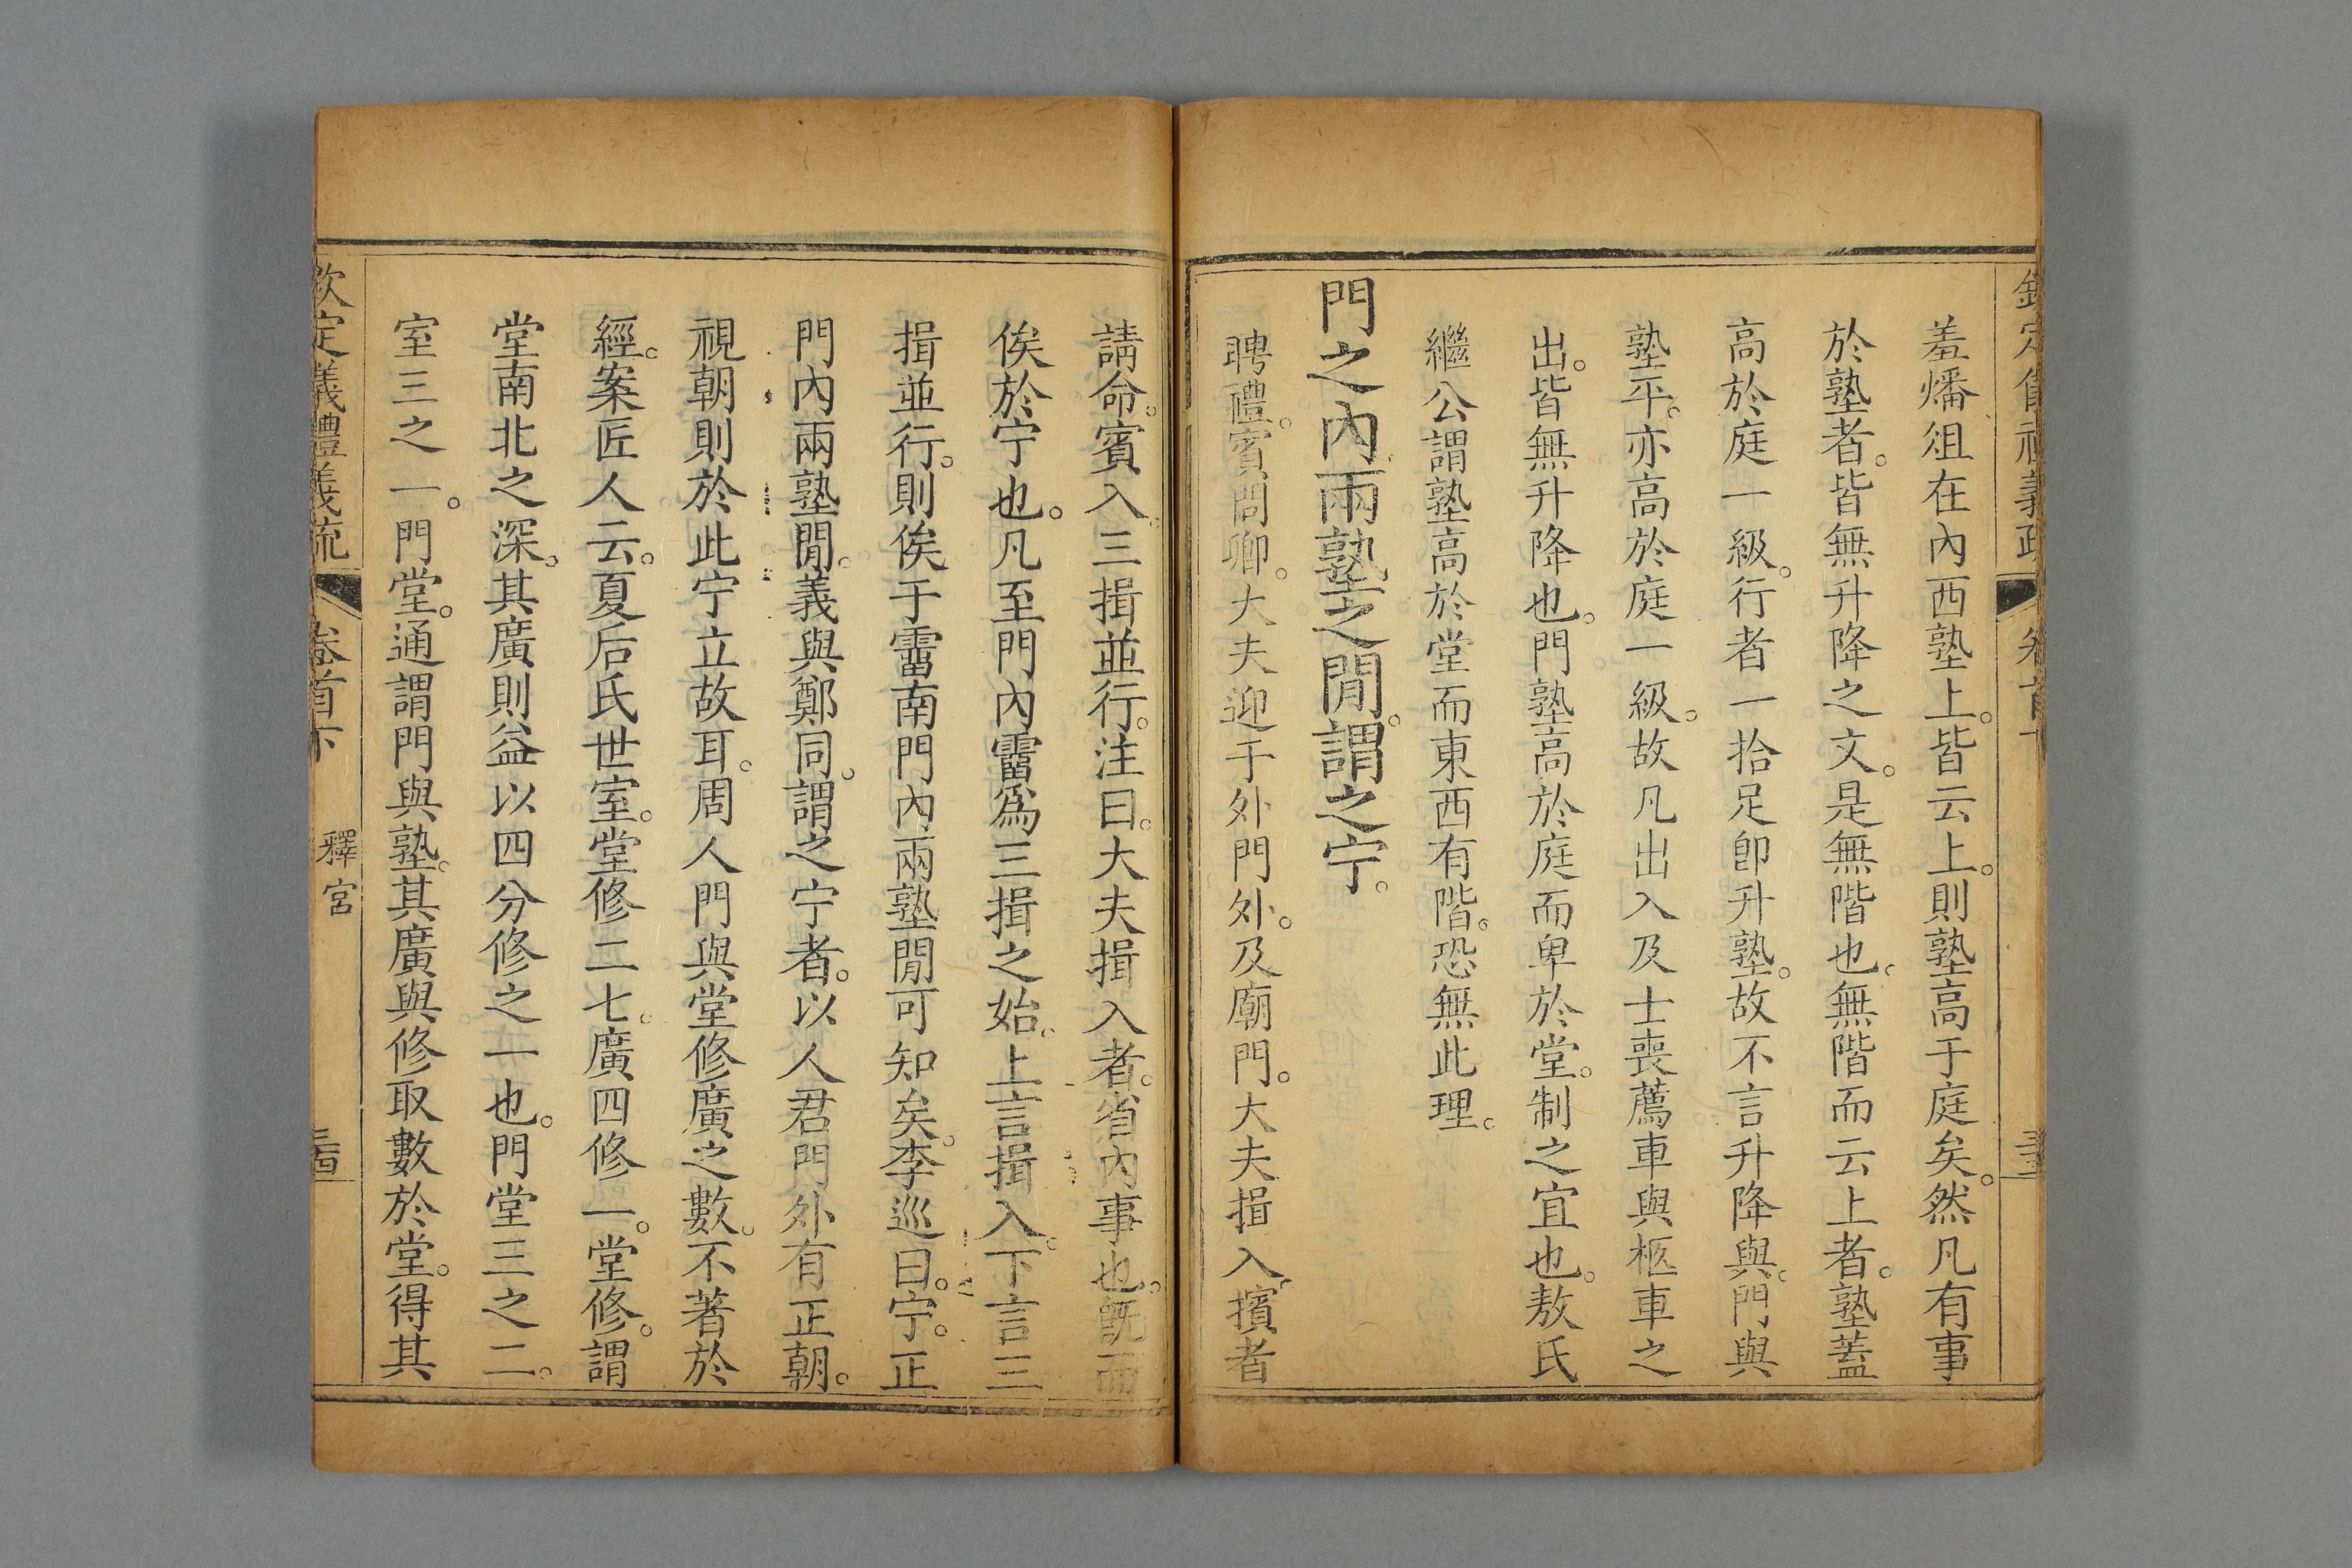 羞燔俎在內西塾上。皆云上。則塾高于庭矣。然凡有事
於塾者。皆無升降之文。是無階也。無階而云上者。塾蓋
高於庭一級。行者一拾足卽升塾。故不言升降與。門與
塾平。亦高於庭一級。故凡出入及士喪薦車與柩車之
出。皆無升降也。門塾高於庭而卑於堂。制之宜也。敖氏
繼公謂塾高於堂而東西有階。恐無此理。
門之內兩塾之閒。謂之宁。
聘禮。賓問卿。大夫迎于外門外。及廟門。大夫揖入。擯者
請命。賓入三揖並行。注曰。大夫揖入者。省內事也。旣而
俟於宁也。凡至門內霤爲三揖之始。上言揖入。下言三
揖並行。則俟于霤南門內兩塾閒可知矣。李巡曰。宁。正
門內兩塾閒。義與鄭同。謂之宁者。以人君門外有正朝。
視朝則於此宁立故耳。周人門與堂修廣之數。不著於
經。案匠人云。夏后氏世室。堂修二七。廣四修一。堂修。謂
堂南北之深。其廣則益以四分修之一也。門堂三之二。
室三之一。門堂。通謂門與塾。其廣與修取數於堂。得其
欽定義禮義疏 卷首下 釋宮